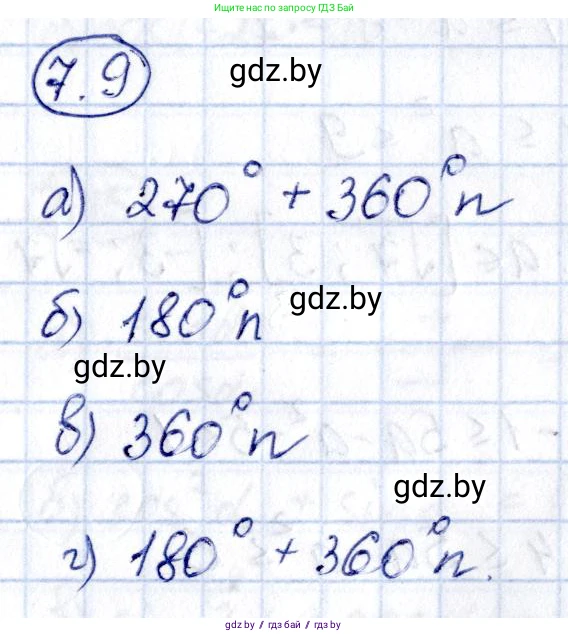 Ищите нас по запросу ГДЗ Бай
7.9 gdz.by
а) 270° + 360°n
б) 180°n gdz.by
gdz.by
в) 360°n
gdz.by
г) 180° + 360°n.
gdz.by / гдз бай / гдз by